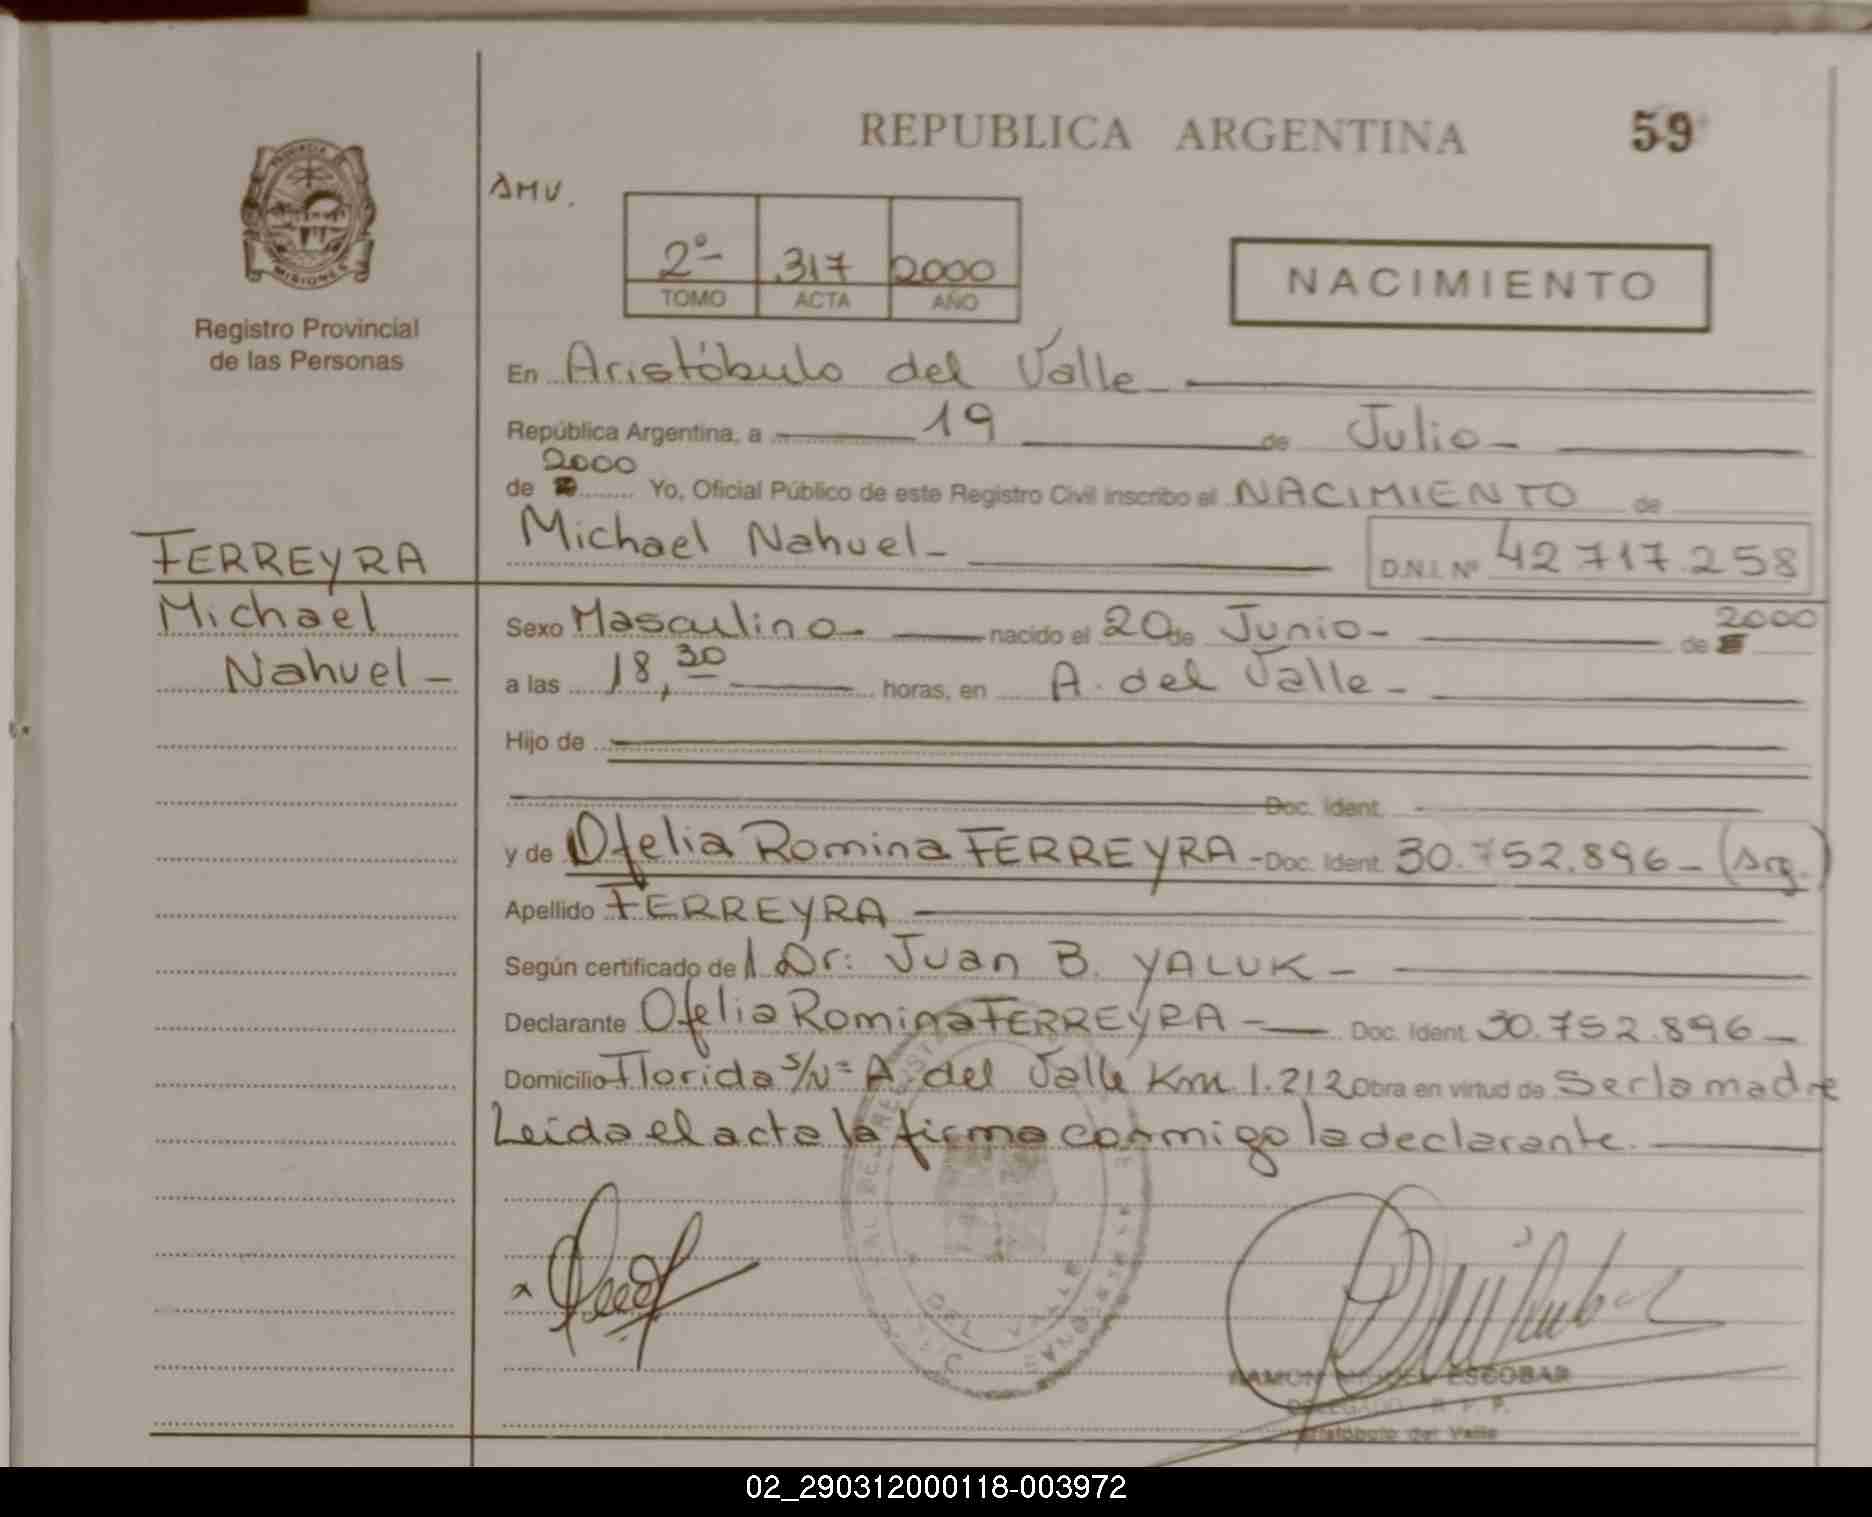 REPUBLICA ARGENTINA
59
PROVINCIA DE
MISIONES
Registro Provincial
de las Personas
AMV.
2º 317 2000
TOMO ACTA AÑO
NACIMIENTO
En Aristóbulo del Valle
República Argentina, a 19 de Julio
2000
de Yo, Oficial Público de este Registro Civil inscribo el NACIMIENTO de
Michael Nahuel D.N.I. Nº 42717.258
FERREYRA
Michael
Nahuel
Sexo Masculino nacido el 20 de Junio de 2000
a las 18,30 horas, en A. del Valle
Hijo de
Doc. Ident.
y de Ofelia Romina FERREYRA Doc. Ident. 30.752.896 (Arg.)
Apellido FERREYRA
Según certificado de l Dr: Juan B. YALUK
Declarante Ofelia Romina FERREYRA Doc. Ident. 30.752.896
Domicilio Florida s/Nº A. del Valle Km 1.212 Obra en virtud de Ser la madre
Leída el acta la firma conmigo la declarante.
DEL VALLE
RAMON MIGUEL ESCOBAR
DELEGADO R. P. P.
Aristóbulo del Valle
02_290312000118-003972